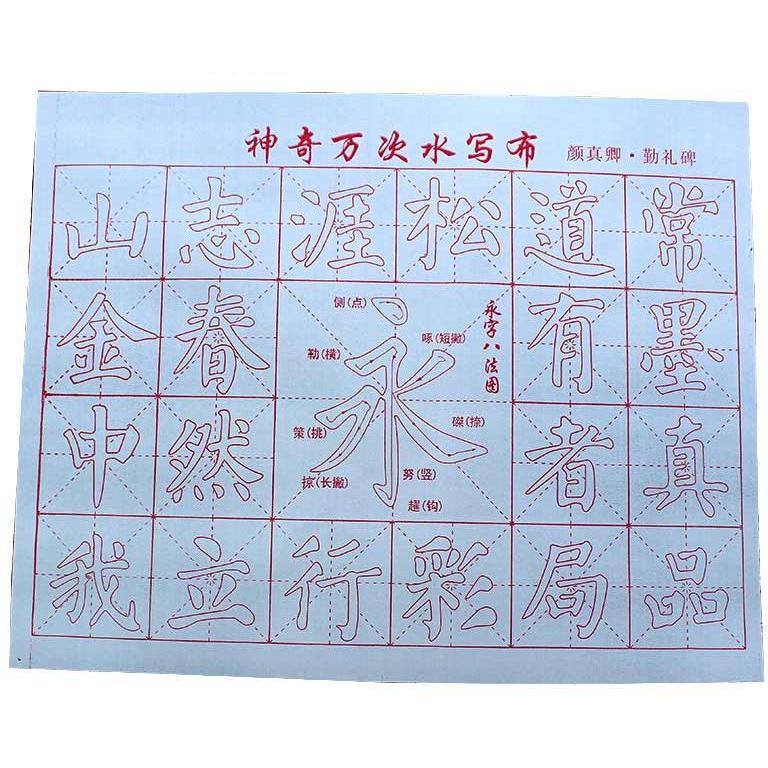 神奇万次水写布 颜真卿·勤礼碑
山志涯松道常
金春
侧(点)
啄(短撇)
勒(横)
永
策(挑)
磔(捺)
掠(长撇)
努(竖)
趯(钩)
永字八法图
有墨
中然
者真
我立行彩局品